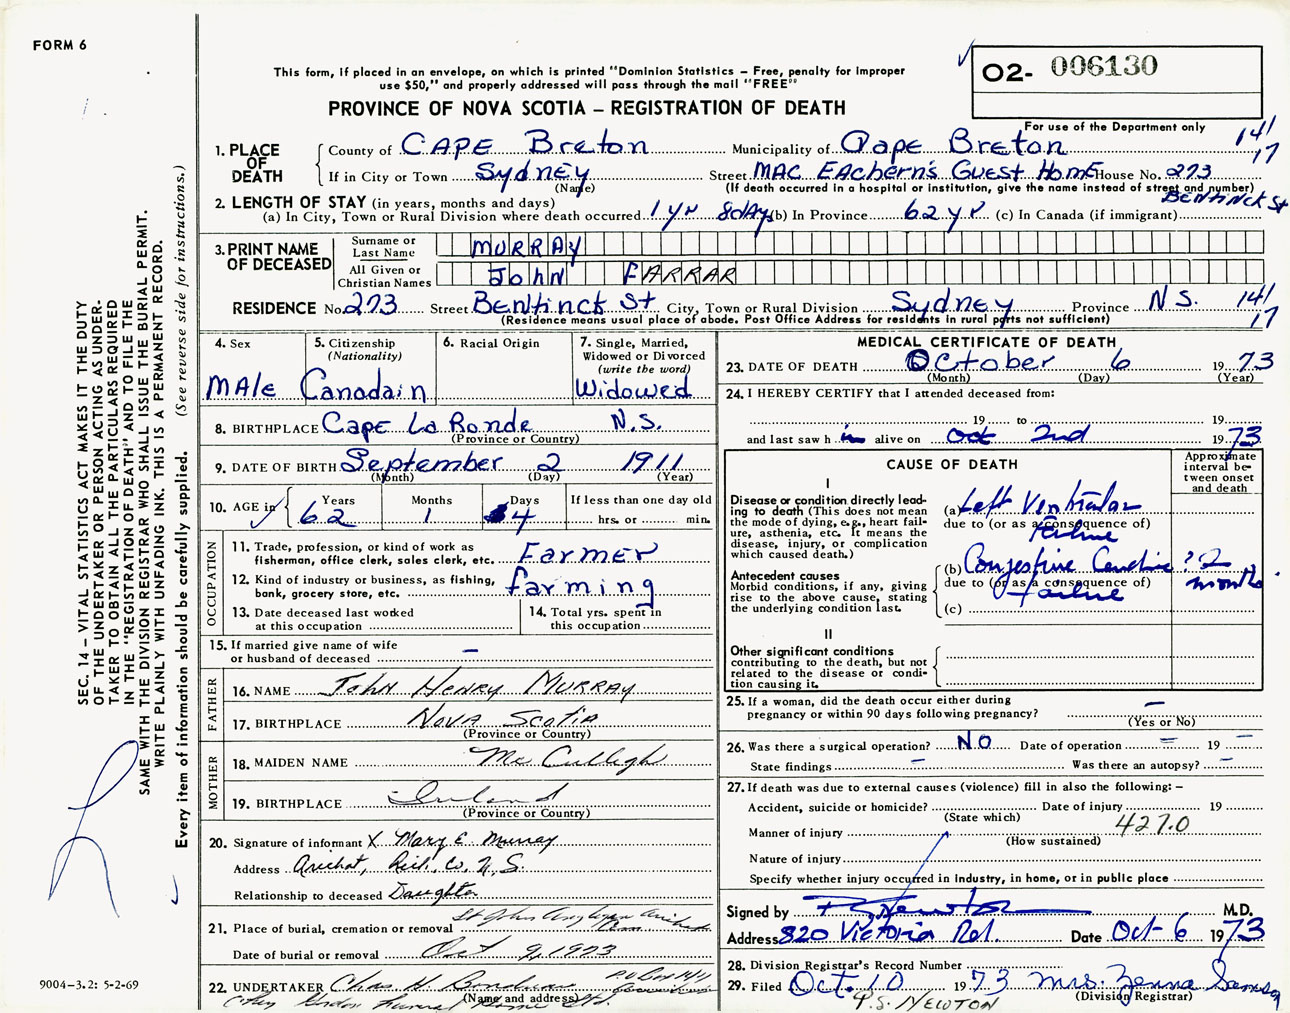 FORM 6
O2- 006130
This form, if placed in an envelope, on which is printed "Dominion Statistics – Free, penalty for improper
use $50," and properly addressed will pass through the mail "FREE"
PROVINCE OF NOVA SCOTIA – REGISTRATION OF DEATH
For use of the Department only
141/17
1. PLACE OF DEATH
County of CAPE Breton Municipality of Cape Breton
If in City or Town Sydney Street MAC EAchern's Guest HomE House No. 273
(Name) (If death occurred in a hospital or institution, give the name instead of street and number)
Bentinck St
2. LENGTH OF STAY (in years, months and days)
(a) In City, Town or Rural Division where death occurred 1 yr 8days (b) In Province 62 yr (c) In Canada (if immigrant)
3. PRINT NAME OF DECEASED
Surname or Last Name MURRAY
All Given or Christian Names John FARRAR
RESIDENCE No. 273 Street Bentinck St City, Town or Rural Division Sydney Province N S. 141/17
(Residence means usual place of abode. Post Office Address for residents in rural parts not sufficient)
4. Sex
MAle
5. Citizenship
(Nationality)
Canadain
6. Racial Origin
7. Single, Married,
Widowed or Divorced
(write the word)
Widowed
8. BIRTHPLACE Cape La Ronde N.S.
(Province or Country)
9. DATE OF BIRTH September 2 1911
(Month) (Day) (Year)
10. AGE in
Years Months Days If less than one day old
62 1 4 hrs. or min.
OCCUPATION
11. Trade, profession, or kind of work as
fisherman, office clerk, sales clerk, etc. Farmer
12. Kind of industry or business, as fishing,
bank, grocery store, etc. farming
13. Date deceased last worked
at this occupation
14. Total yrs. spent in
this occupation
15. If married give name of wife
or husband of deceased –
FATHER
16. NAME John Henry Murray
17. BIRTHPLACE Nova Scotia
(Province or Country)
MOTHER
18. MAIDEN NAME Mc Cullogh
19. BIRTHPLACE Ireland
(Province or Country)
20. Signature of informant X Mary E. Murray
Address Arichat, Rich. Co. N.S.
Relationship to deceased Daughter
21. Place of burial, cremation or removal St John Cem
Date of burial or removal Oct 9, 1973
22. UNDERTAKER Chas H.
(Name and address)
Funeral Home Ltd.
MEDICAL CERTIFICATE OF DEATH
23. DATE OF DEATH October 6 1973
(Month) (Day) (Year)
24. I HEREBY CERTIFY that I attended deceased from:
19 to 19
and last saw h im alive on Oct 2nd 1973
CAUSE OF DEATH
Approximate
interval be-
tween onset
and death
I
Disease or condition directly lead-
ing to death (This does not mean
the mode of dying, e.g., heart fail-
ure, asthenia, etc. It means the
disease, injury, or complication
which caused death.)
(a) Left Ventricular
due to (or as a consequence of)
Failure
Antecedent causes
Morbid conditions, if any, giving
rise to the above cause, stating
the underlying condition last.
(b) Congestive Cardiac ? 2
due to (or as a consequence of)
Failure months
(c)
II
Other significant conditions
contributing to the death, but not
related to the disease or condi-
tion causing it.
25. If a woman, did the death occur either during
pregnancy or within 90 days following pregnancy? –
(Yes or No)
26. Was there a surgical operation? NO Date of operation – 19 –
State findings – Was there an autopsy? –
27. If death was due to external causes (violence) fill in also the following: –
Accident, suicide or homicide? Date of injury 19
(State which)
427.0
Manner of injury
(How sustained)
Nature of injury
Specify whether injury occurred in industry, in home, or in public place
Signed by P.S. Newton M.D.
Address 820 Victoria Rd. Date Oct 6 1973
28. Division Registrar's Record Number
29. Filed Oct. 10 1973 Mrs. Zenna Samson
(Division Registrar)
P.S. NEWTON
SEC. 14 – VITAL STATISTICS ACT MAKES IT THE DUTY
OF THE UNDERTAKER OR PERSON ACTING AS UNDER-
TAKER TO OBTAIN ALL THE PARTICULARS REQUIRED
IN THE "REGISTRATION OF DEATH" AND TO FILE THE
SAME WITH THE DIVISION REGISTRAR WHO SHALL ISSUE THE BURIAL PERMIT.
WRITE PLAINLY WITH UNFADING INK. THIS IS A PERMANENT RECORD.
Every item of information should be carefully supplied. (See reverse side for instructions.)
9004–3.2: 5-2-69